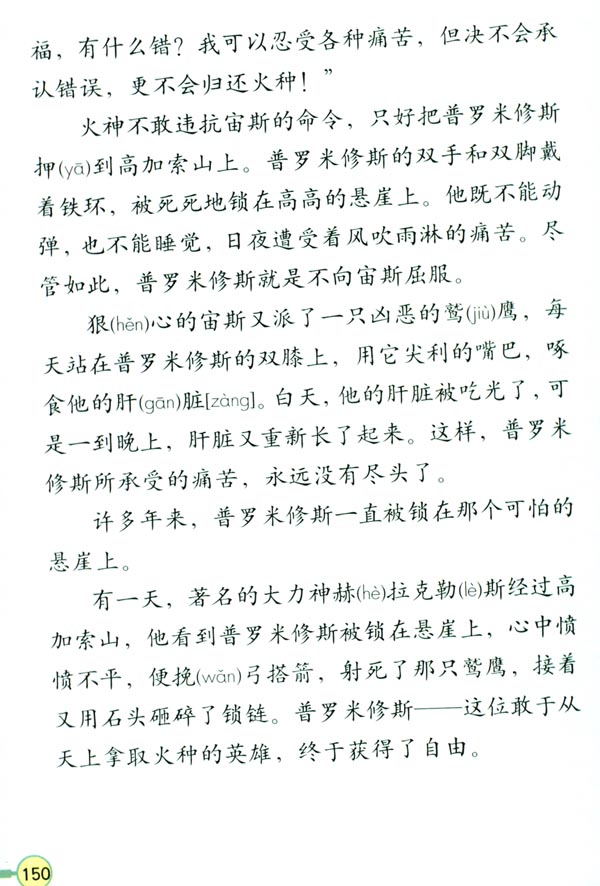 福，有什么错？我可以忍受各种痛苦，但决不会承
认错误，更不会归还火种！”
火神不敢违抗宙斯的命令，只好把普罗米修斯
押(yā)到高加索山上。普罗米修斯的双手和双脚戴
着铁环，被死死地锁在高高的悬崖上。他既不能动
弹，也不能睡觉，日夜遭受着风吹雨淋的痛苦。尽
管如此，普罗米修斯就是不向宙斯屈服。
狠(hěn)心的宙斯又派了一只凶恶的鹫(jiù)鹰，每
天站在普罗米修斯的双膝上，用它尖利的嘴巴，啄
食他的肝(gān)脏[zàng]。白天，他的肝脏被吃光了，可
是一到晚上，肝脏又重新长了起来。这样，普罗米
修斯所承受的痛苦，永远没有尽头了。
许多年来，普罗米修斯一直被锁在那个可怕的
悬崖上。
有一天，著名的大力神赫(hè)拉克勒(lè)斯经过高
加索山，他看到普罗米修斯被锁在悬崖上，心中愤
愤不平，便挽(wǎn)弓搭箭，射死了那只鹫鹰，接着
又用石头砸碎了锁链。普罗米修斯——这位敢于从
天上拿取火种的英雄，终于获得了自由。
150